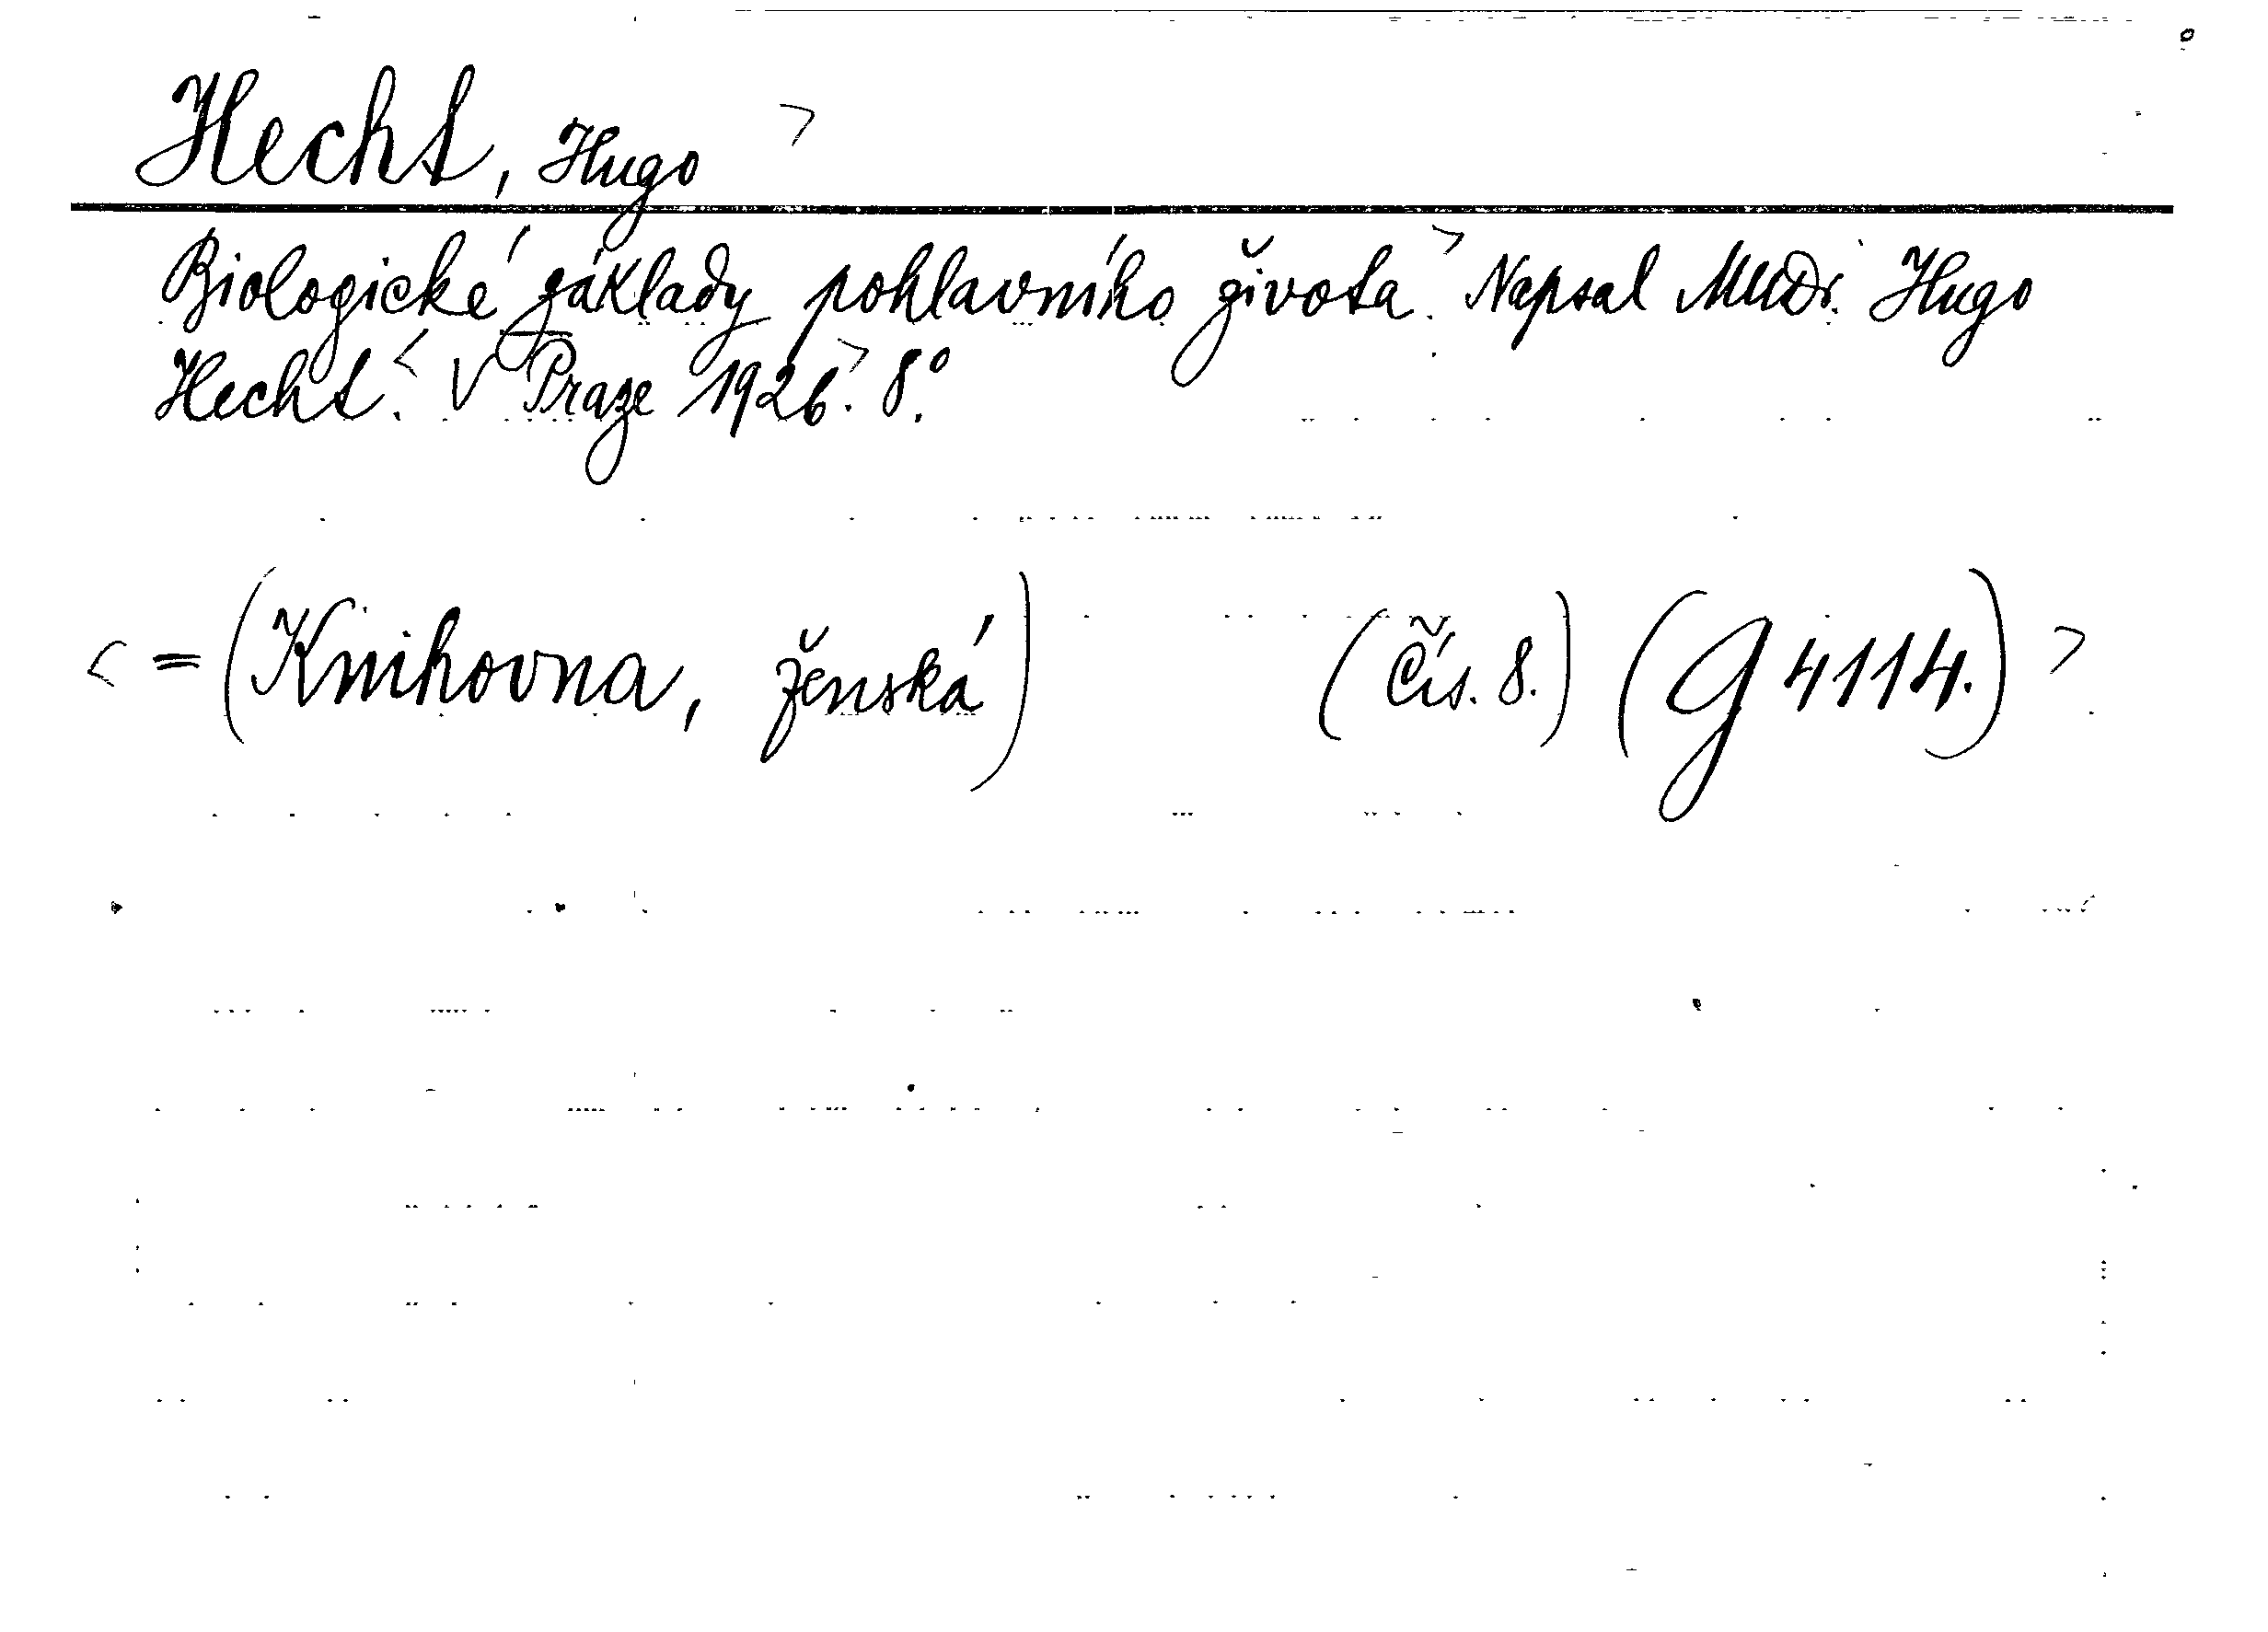 Hecht, Hugo >
Biologické základy pohlavního života.> Napsal MUDr. Hugo
Hecht.< V Praze 1926.> 8°.
< = (Knihovna, ženská) (Čís. 8.) (G 4114.) >